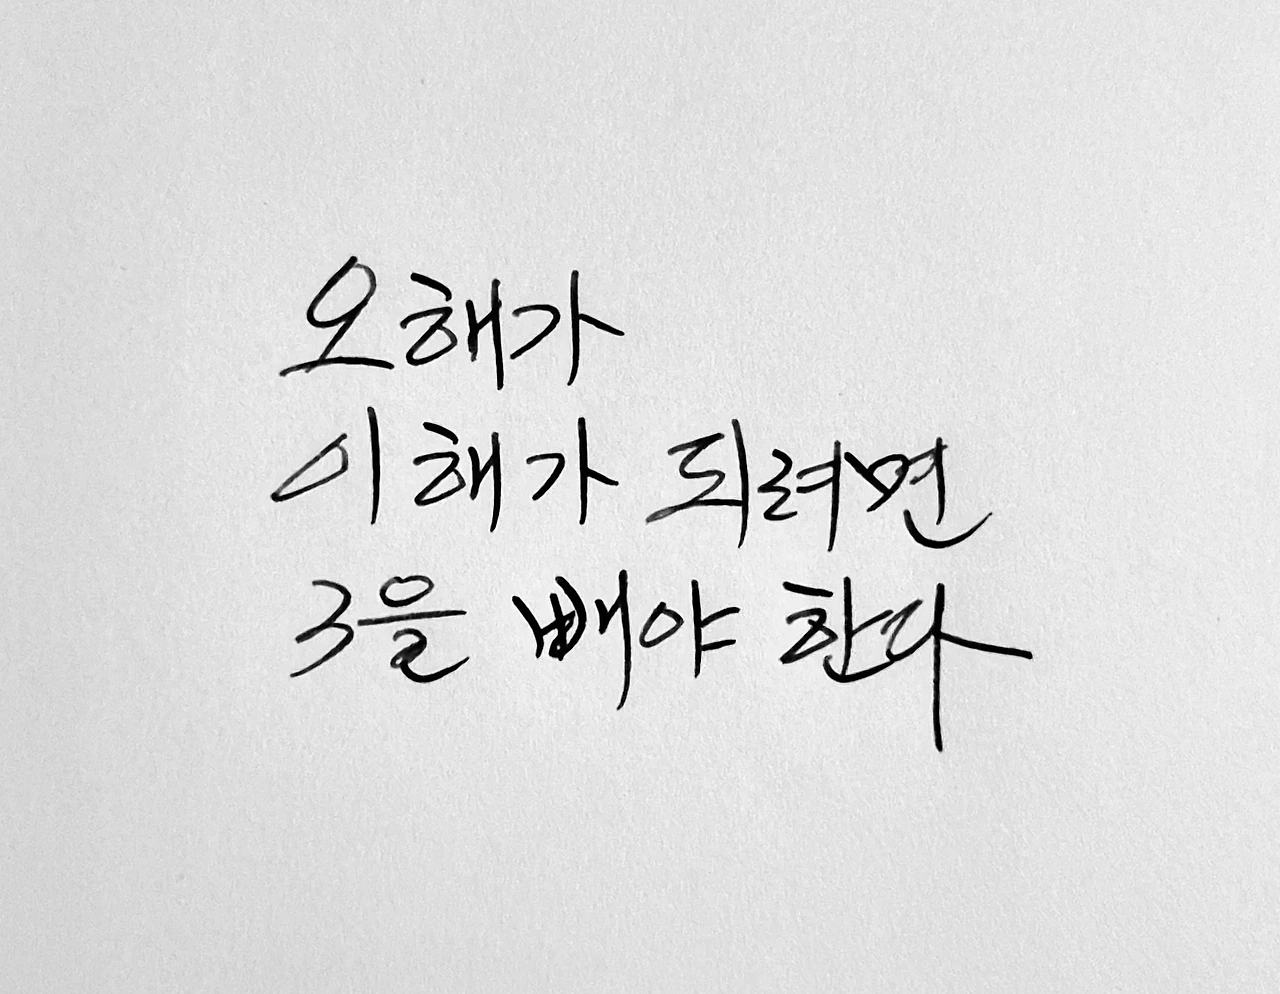 오해가
이해가 되려면
3을 빼야 한다